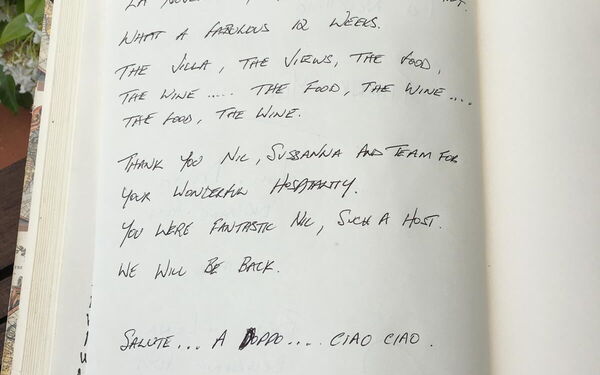 WHAT A FABULOUS 12 WEEKS.
THE VILLA, THE VIEWS, THE FOOD,
THE WINE..... THE FOOD, THE WINE....
THE FOOD, THE WINE.
THANK YOU NIC, SUSSANNA AND TEAM FOR
YOUR WONDERFUL HOSPITALITY.
YOU WERE FANTASTIC NIC, SUCH A HOST.
WE WILL BE BACK.
SALUTE... A DOPPO.... CIAO CIAO.